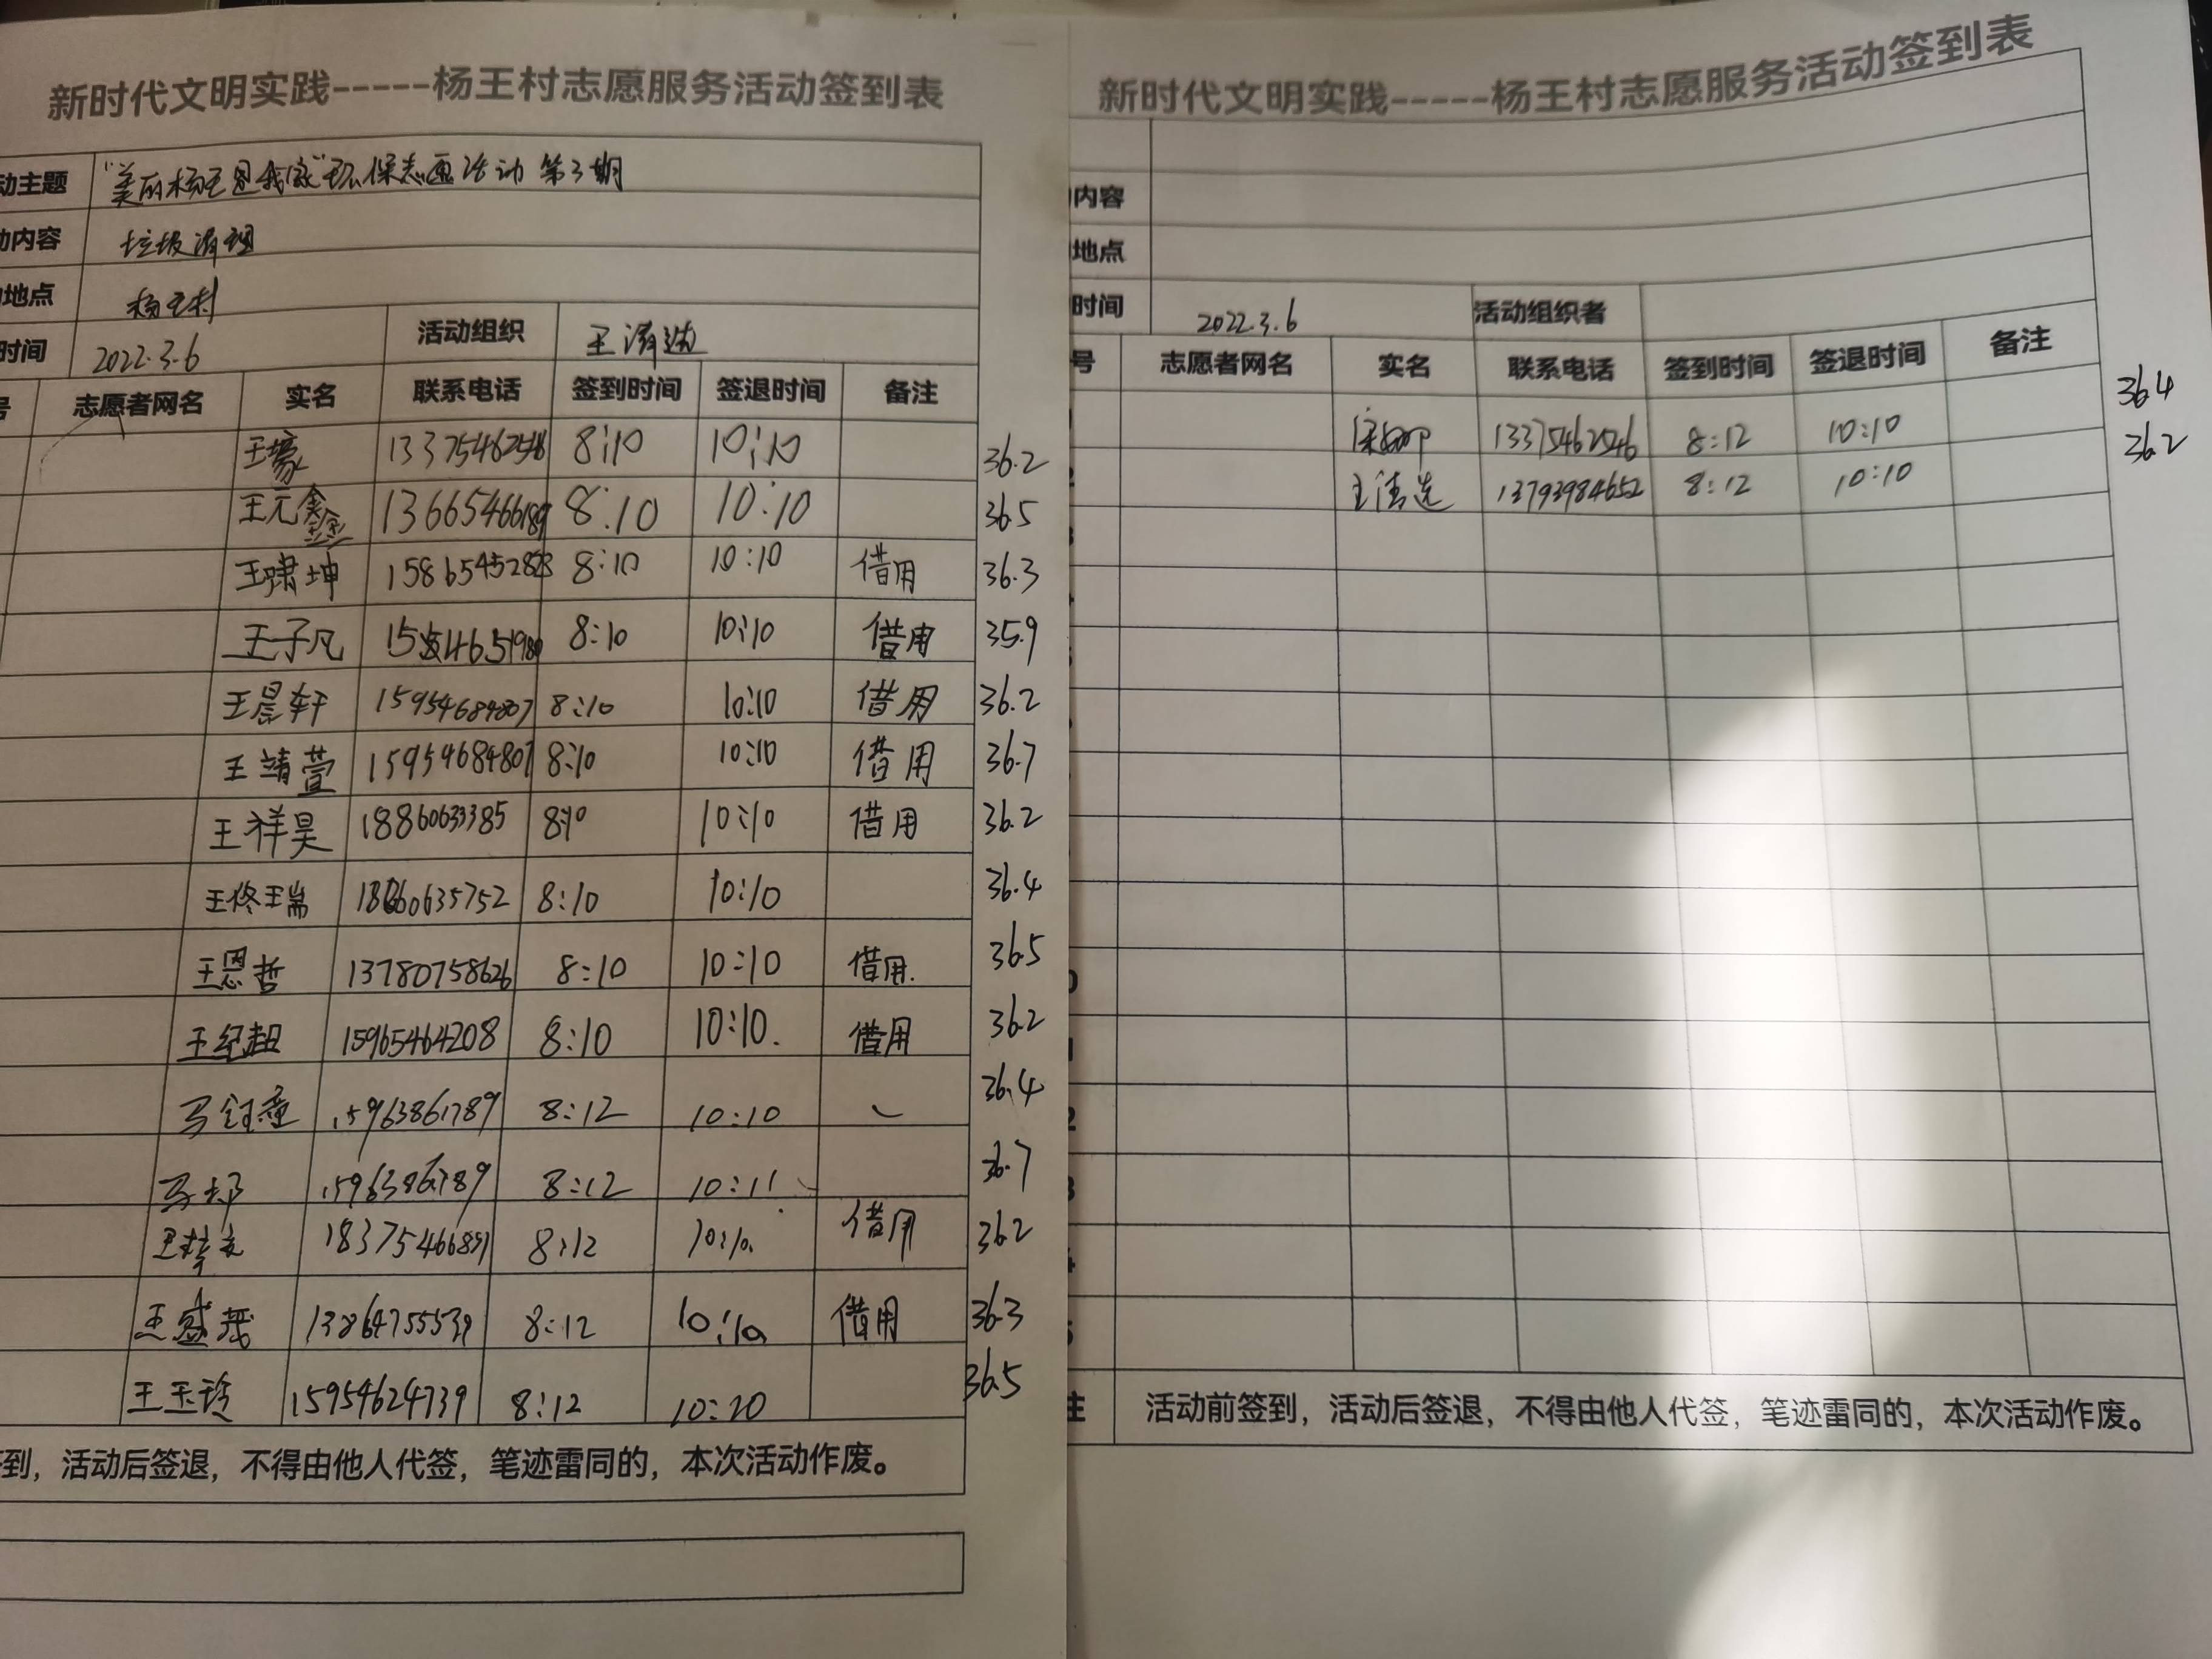 新时代文明实践-----杨王村志愿服务活动签到表
动主题 "美丽杨王是我家"环保志愿活动 第3期
动内容 垃圾清理
地点 杨王村
时间 2022.3.6 活动组织 王清选
号 志愿者网名 实名 联系电话 签到时间 签退时间 备注
王豪 13375462546 8:10 10:10 36.2
王元鑫 13665466189 8:10 10:10 36.5
王啸坤 15865452823 8:10 10:10 借用 36.3
王子凡 8:10 10:10 借用 35.9
王晨轩 15954684807 8:10 10:10 借用 36.2
王靖萱 15954684807 8:10 10:10 借用 36.7
王祥昊 18860633385 8:10 10:10 借用 36.2
王佟瑞 18660635752 8:10 10:10 36.4
王恩哲 13780758626 8:10 10:10 借用. 36.5
王纪超 15965464208 8:10 10:10. 借用 36.2
马钰童 15963861789 8:12 10:10 36.4
15963861789 8:12 10:11 36.7
18375466891 8:12 10:10. 借用 36.2
王盛茂 13864755539 8:12 10:10 借用 36.3
王玉玲 15954624739 8:12 10:20 36.5
到，活动后签退，不得由他人代签，笔迹雷同的，本次活动作废。
新时代文明实践-----杨王村志愿服务活动签到表
内容
地点
时间 2022.3.6 活动组织者
号 志愿者网名 实名 联系电话 签到时间 签退时间 备注
13375462546 8:12 10:10 36.4
王清选 13793984652 8:12 10:10 36.2
注 活动前签到，活动后签退，不得由他人代签，笔迹雷同的，本次活动作废。